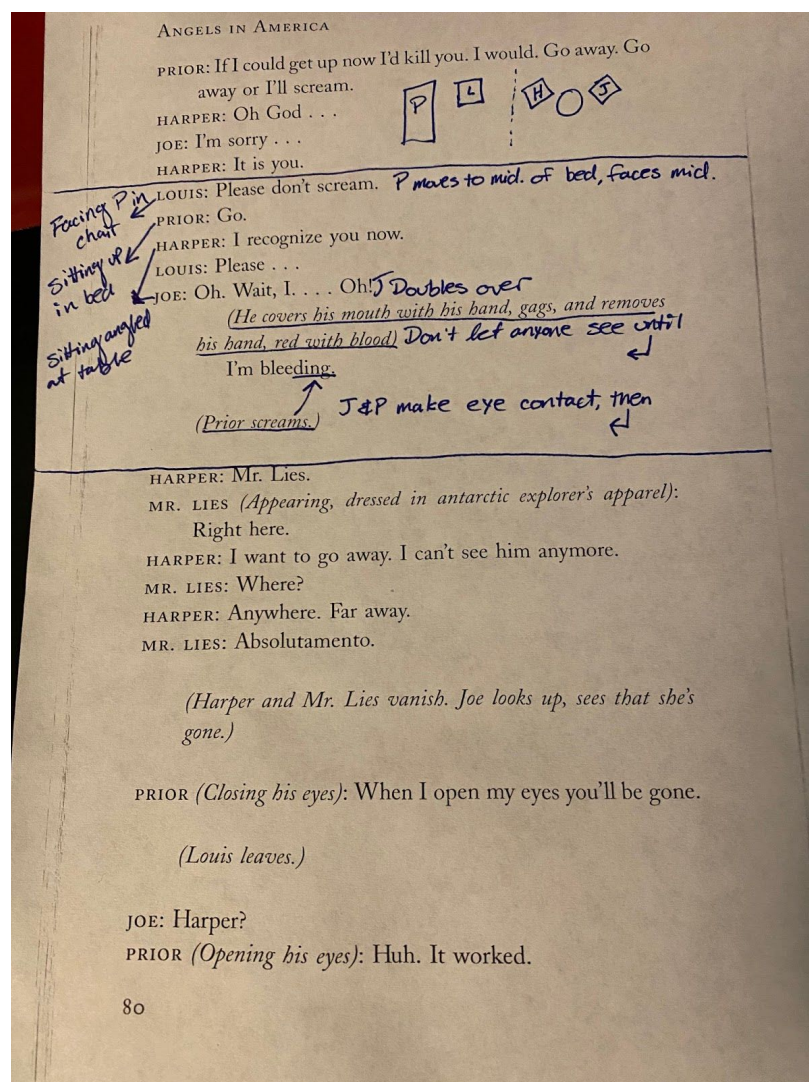 ANGELS IN AMERICA
PRIOR: If I could get up now I'd kill you. I would. Go away. Go
away or I'll scream.
HARPER: Oh God . . .
JOE: I'm sorry . . .
HARPER: It is you.
P
L
H
J
LOUIS: Please don't scream. P moves to mid. of bed, faces mid.
PRIOR: Go.
HARPER: I recognize you now.
LOUIS: Please . . .
JOE: Oh. Wait, I. . . . Oh! J Doubles over
(He covers his mouth with his hand, gags, and removes
his hand, red with blood) Don't let anyone see until
I'm bleeding.
J & P make eye contact, then
(Prior screams.)
Facing P in
chair
Sitting up
in bed
Sitting angled
at table
HARPER: Mr. Lies.
MR. LIES (Appearing, dressed in antarctic explorer's apparel):
Right here.
HARPER: I want to go away. I can't see him anymore.
MR. LIES: Where?
HARPER: Anywhere. Far away.
MR. LIES: Absolutamento.
(Harper and Mr. Lies vanish. Joe looks up, sees that she's
gone.)
PRIOR (Closing his eyes): When I open my eyes you'll be gone.
(Louis leaves.)
JOE: Harper?
PRIOR (Opening his eyes): Huh. It worked.
80